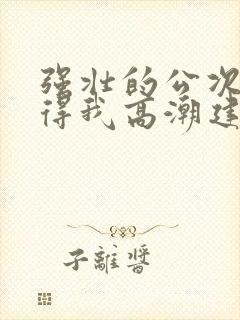 强壮的公次
得我高潮建
子離醬